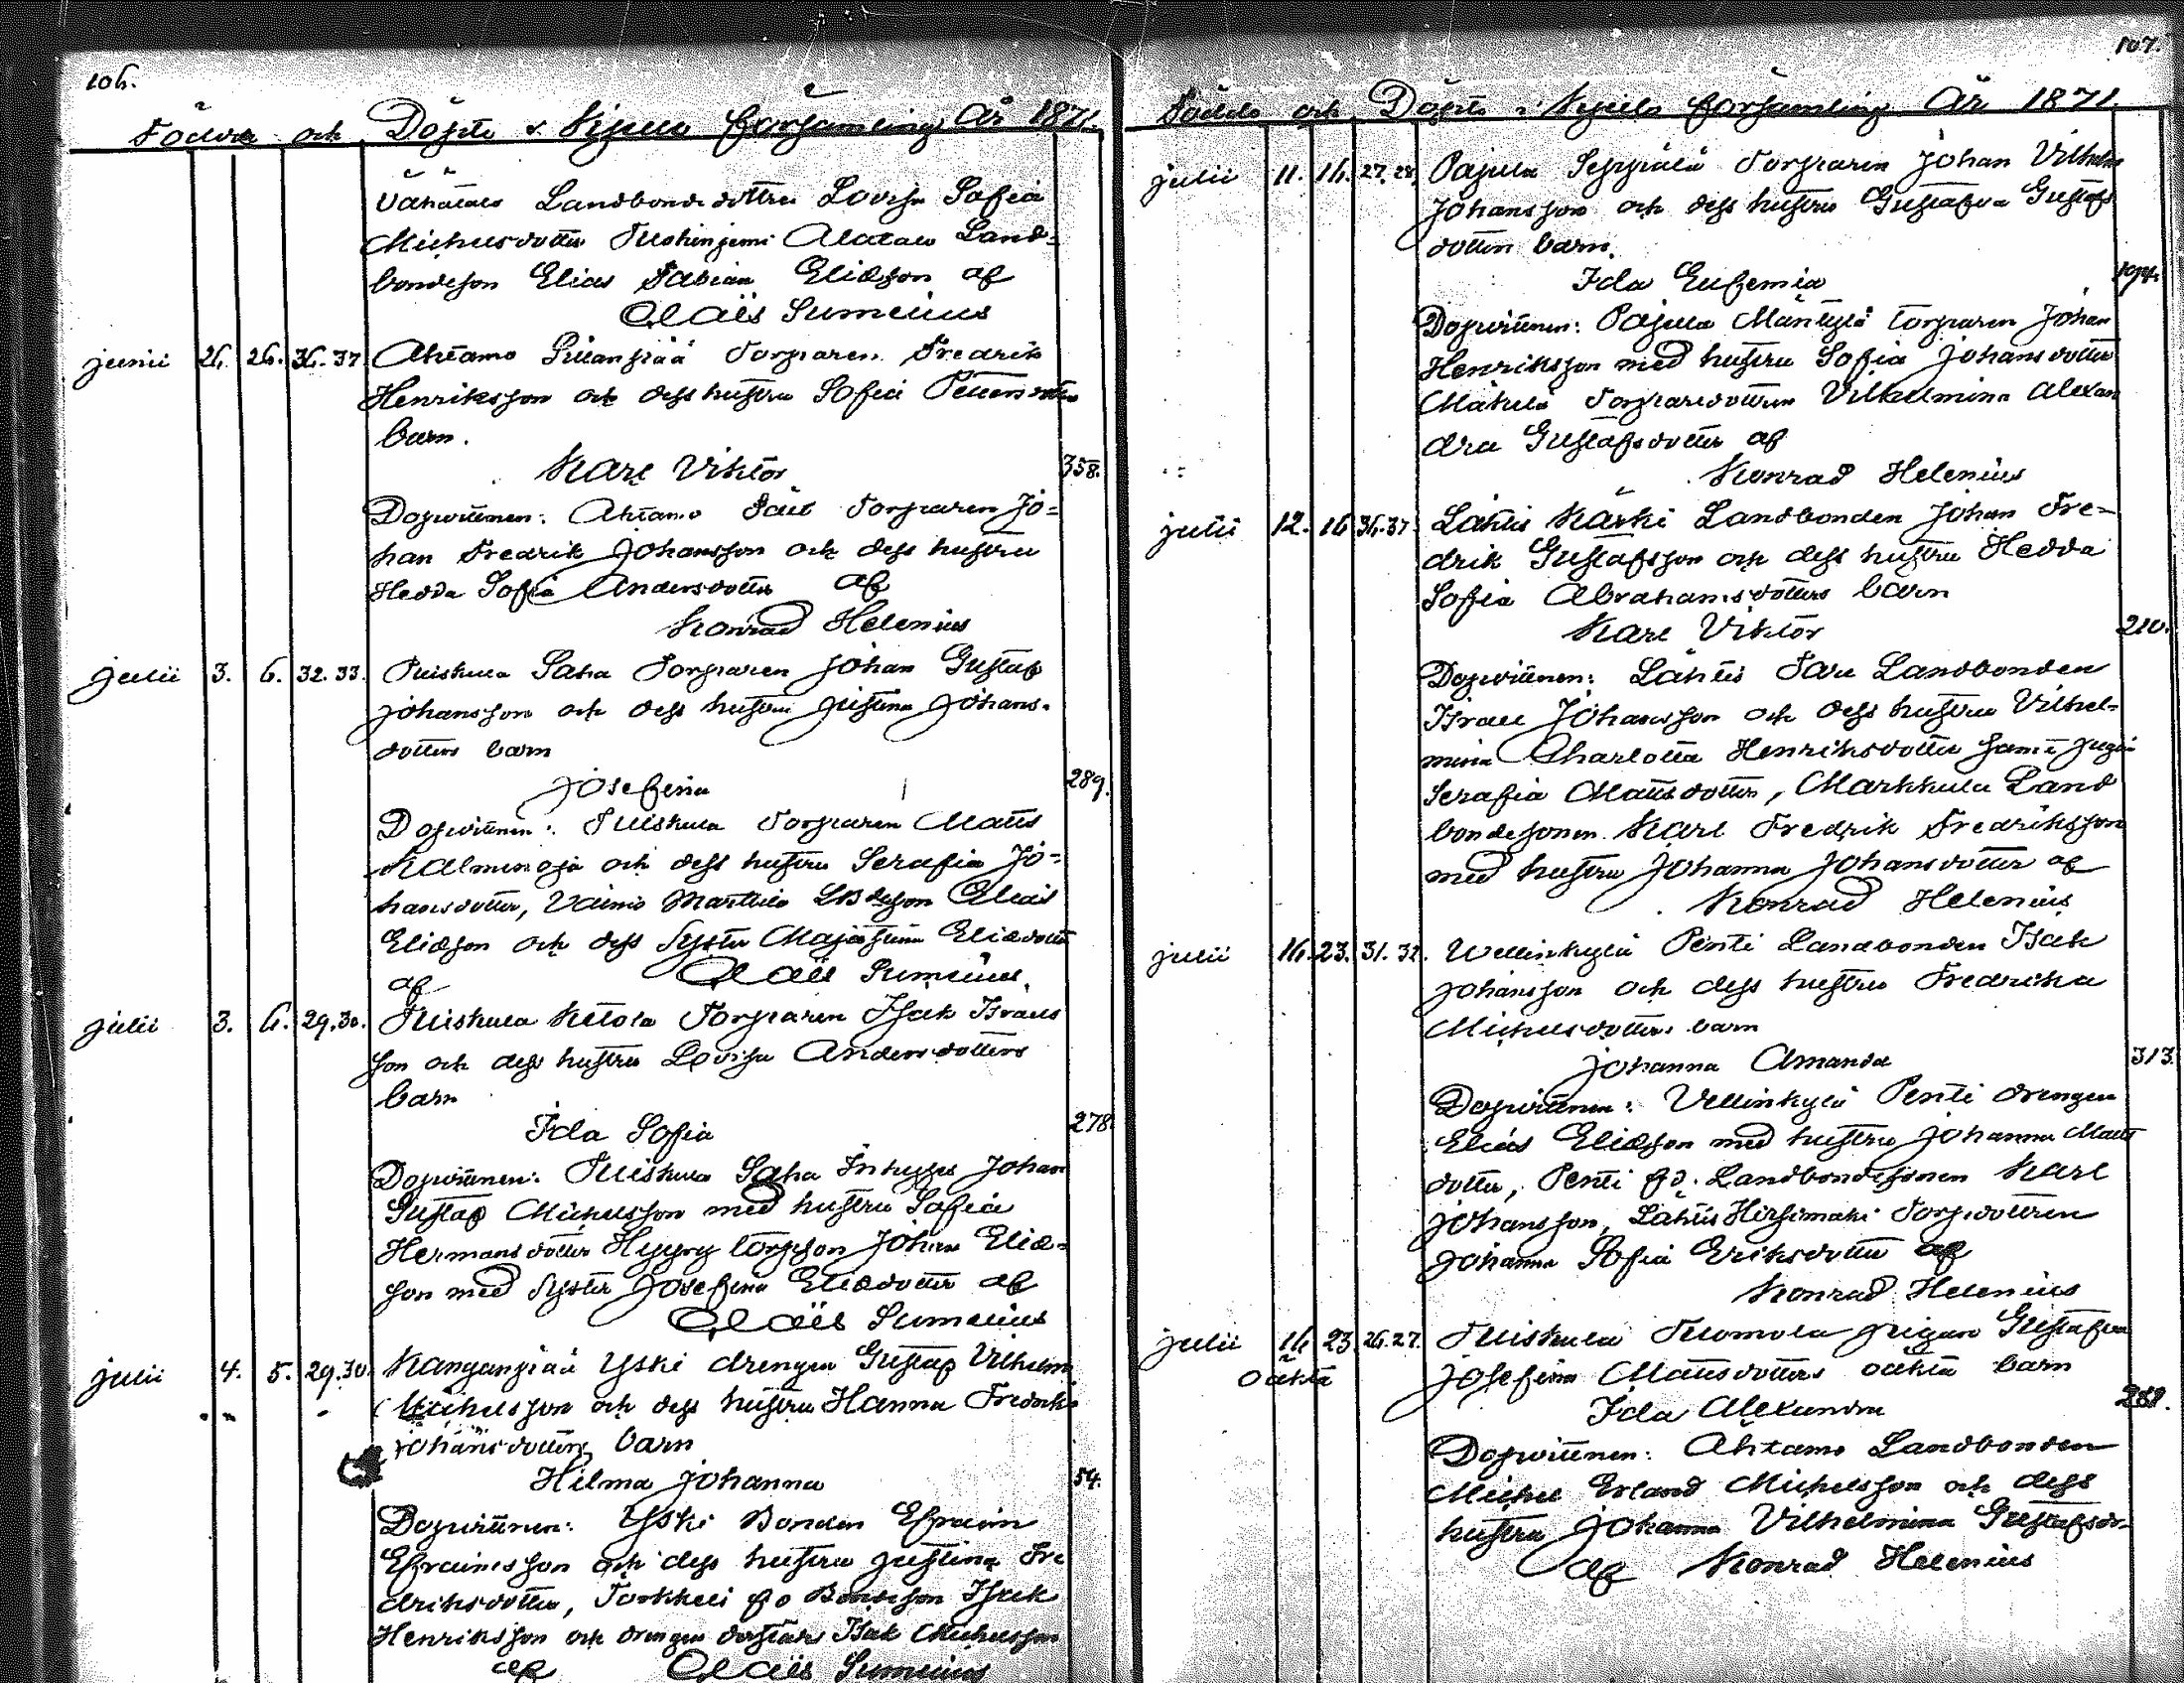 106.
Födda och Döpte i Kjulo församling År 1871.
Vähätalo Landbondedottren Lovisa Sofia
Michelsdotter Alatalo Land=
bondeson Elias Fabian Eliæson af
Claës Sumelius
junii 26. 26. 36.37 Ahtamo Torparen Fredrik
Henriksson och dess hustru Sofia Pettersdotters
barn.
Karl Viktor
358.
Dopvittnen: Ahtamo Torparen Jo=
han Fredrik Johansson och dess hustru
Hedda Sofia Andersdotter af
Konrad Helenius
julii 3. 6. 32.33. Tuiskula Saha Torparen Johan Gustaf
Johansson och dess hustru Justina Johans-
dotters barn
Josefina
289.
Dopvittnen: Tuiskula Torparen Matts
Kalmenoja och dess hustru Serafia Jo=
hansdotter, Elias
Eliæson och dess Syster Maja Stina Eliædotter
af Claës Sumelius.
julii 3. 6. 29.30. Tuiskula Ketola Torparen Isak Israels
son och dess hustru Lovisa Andersdotters
barn
Ida Sofia
278.
Dopvittnen: Tuiskula Saha Inhyses Johan
Gustaf Michelsson med hustru Sofia
Hermansdotter Hyyry torpson Johan Eliæ=
son med Syster Josefina Eliædotter af
Claës Sumelius
julii 4. 5. 29.30. Kanganpää Yski drengen Gustaf Vilhelm
Michelsson och dess hustru Hanna Fredrika
Johansdotters barn
Hilma Johanna
54.
Dopvittnen: Yski Bonden Efraim
Efraimsson och dess hustru Justina Fre
driksdotter, Torkkeli Bondeson Isak
Henriksson och drengen Isak Michelsson
af Claës Sumelius
107.
Födde och Döpte i Kjulo församling År 1871.
julii 11. 16. 27.28. Pajula Seppälä Torparen Johan Vilhelm
Johansson och dess hustru Gustafva Gustafs
dotters barn.
Ida Eufemia
194.
Dopvittnen: Pajula Mäntylä torparen Johan
Henriksson med hustru Sofia Johansdotter
Mäkelä Torparedottren Vilhelmina Alexan
dra Gustafsdotter af
Konrad Helenius
julii 12. 16 36.37. Lähtis Kärki Landbonden Johan Fre-
drik Gustafsson och dess hustru Hedda
Sofia Abrahamsdotters barn
Karl Viktor
210.
Dopvittnen: Lähtis Landbonden
Israel Johansson och dess hustru Vilhel-
mina Charlotta Henriksdotter samt pigan
Serafia Mattsdotter, Markkula Land
bondesonen Karl Fredrik Fredriksson
med hustru Johanna Johansdotter af
Konrad Helenius
julii 16. 23. 31.32. Wellinkylä Pentti Landbonden Isak
Johansson och dess hustru Fredrika
Michelsdotters barn
Johanna Amanda
313.
Dopvittnen: Vellinkylä Pentti drengen
Elias Eliæson med hustru Johanna Matts
dotter, Pentti fd. Landbondesonen Karl
Johansson, Lähtis Hirsimäki Torpdottren
Johanna Sofia Eriksdotter af
Konrad Helenius
julii 16 23 26.27. Tuiskula Tuomola pigan Gustafva
oäkta Josefina Mattsdotters oäkta barn
Ida Alexandra
289.
Dopvittnen: Ahtamo Landbonden
Michel Erland Michelsson och dess
hustru Johanna Vilhelmina Gustafsdr-
af Konrad Helenius